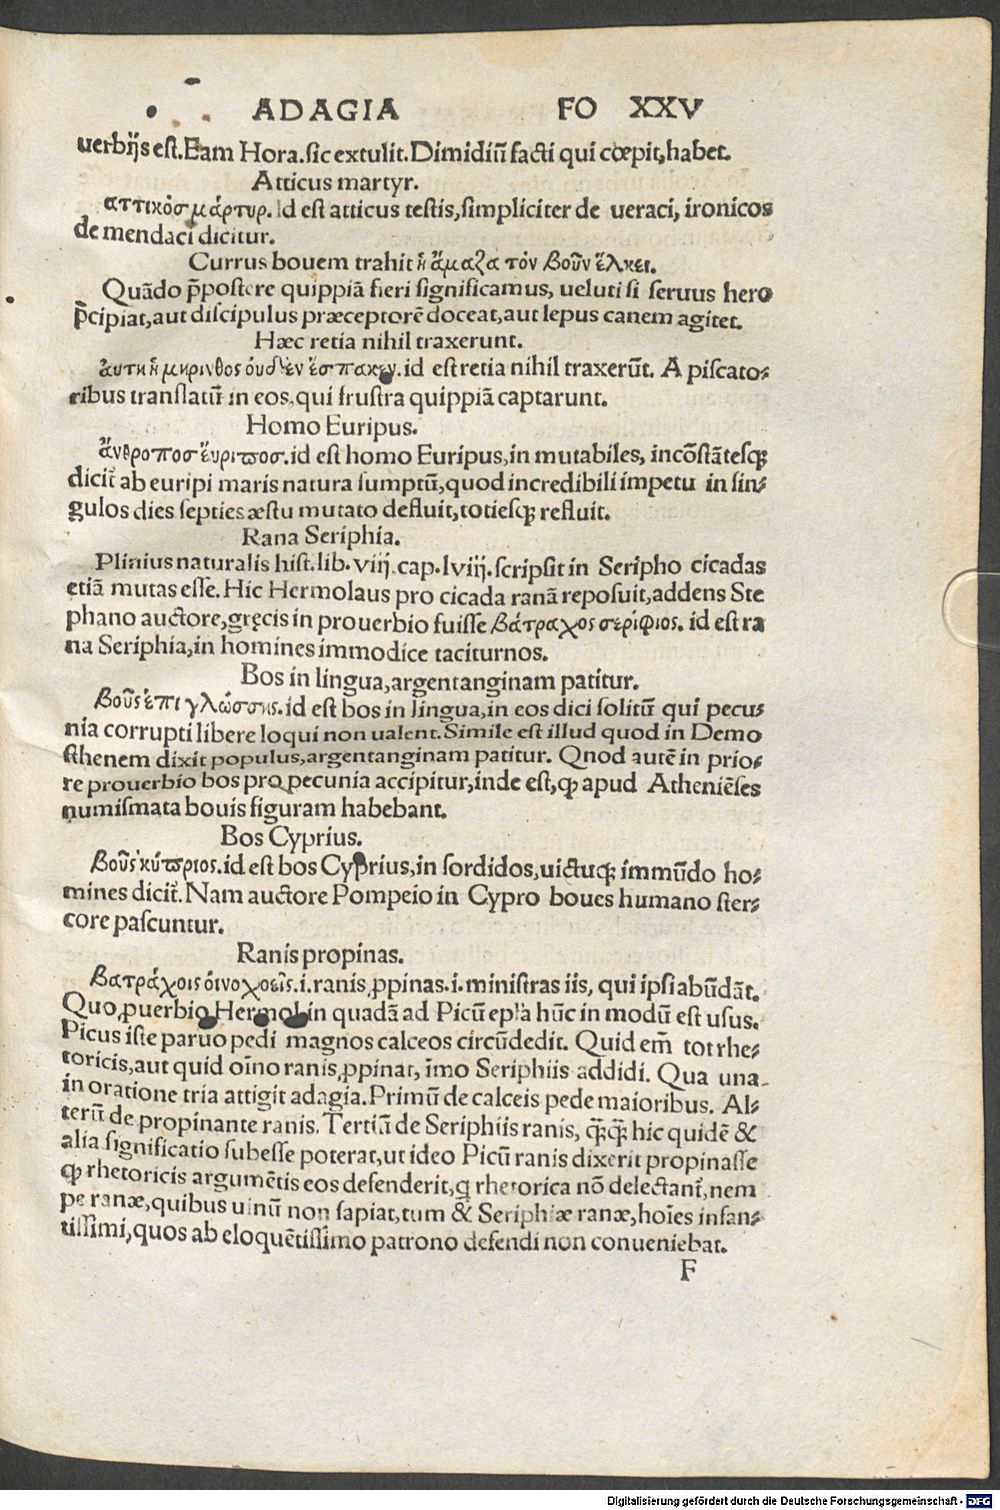 ADAGIA FO XXV
uerbijs est. Eam Hora. sic extulit. Dimidiũ facti qui cœpit, habet.
Atticus martyr.
ἀττικὸσ μάρτυρ. Id est atticus testis, simpliciter de ueraci, ironicos
de mendaci dicitur.
Currus bouem trahit ἡ ἅμαξα τὸν βοῦν ἕλκει.
Quãdo p̃postere quippiã fieri significamus, ueluti si seruus hero
p̃cipiat, aut discipulus præceptorẽ doceat, aut lepus canem agitet.
Hæc retia nihil traxerunt.
ἀυτη ἡ μηρινθος ὀυδ'ὲν ἐσπακεν. id est retia nihil traxerũt. A piscato-
ribus translatũ in eos, qui frustra quippiã captarunt.
Homo Euripus.
ἄνθροποσ ἔυριποσ. id est homo Euripus, in mutabiles, incõstãtesq;
dicit̃ ab euripi maris natura sumptũ, quod incredibili impetu in sin-
gulos dies septies æstu mutato defluit, totiesq; refluit.
Rana Seriphia.
Plinius naturalis hist. lib. viij. cap. lviij. scripsit in Seripho cicadas
etiã mutas esse. Hic Hermolaus pro cicada ranã reposuit, addens Ste
phano auctore, gręcis in prouerbio fuisse βάτραχος σερίφιος. id est ra
na Seriphia, in homines immodice taciturnos.
Bos in lingua, argentanginam patitur.
Βοῦς ἐπι γλώσσης. id est bos in lingua, in eos dici solitũ qui pecu-
nia corrupti libere loqui non ualent. Simile est illud quod in Demo
sthenem dixit populus, argentanginam patitur. Qnod autẽ in prio-
re prouerbio bos pro pecunia accipitur, inde est, ꝙ apud Atheniẽses
numismata bouis figuram habebant.
Bos Cyprius.
Βοῦς κύπριος. id est bos Cyprius, in sordidos, uictuq; immũdo ho-
mines dicit̃. Nam auctore Pompeio in Cypro boues humano ster-
core pascuntur.
Ranis propinas.
Βατράχοις ὀινοχοεῖς. i. ranis ꝓpinas. i. ministras iis, qui ipsi abũdãt.
Quo ꝓuerbio Hermol. in quadã ad Picũ epl̃a hũc in modũ est usus.
Picus iste paruo pedi magnos calceos circũdedit. Quid em̃ tot rhe-
toricis, aut quid oĩno ranis ꝓpinat, imo Seriphiis addidi. Qua una
in oratione tria attigit adagia. Primũ de calceis pede maioribus. Al-
terũ de propinante ranis. Tertiã de Seriphiis ranis, q̃q̃ hic quidẽ &
alia significatio subesse poterat, ut ideo Picũ ranis dixerit propinasse
ꝙ rhetoricis argumẽtis eos defenderit, q rhetorica nõ delectant̃, nem
pe ranæ, quibus uinũ non sapiat, tum & Seriphiæ ranæ, hoĩes infan-
tissimi, quos ab eloquẽtissimo patrono defendi non conueniebat.
F
Digitalisierung gefördert durch die Deutsche Forschungsgemeinschaft - DFG